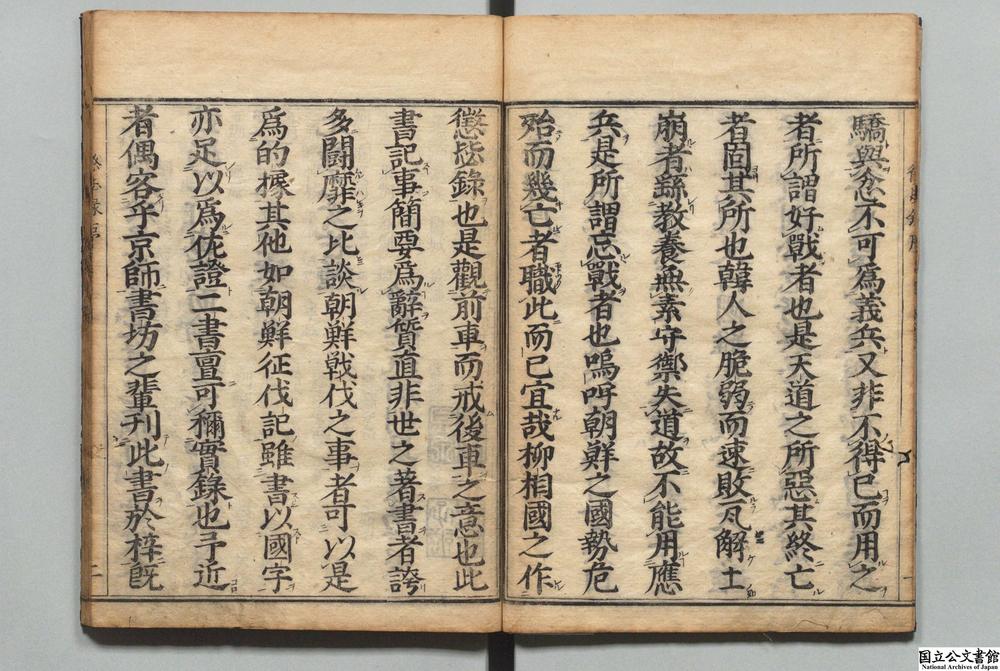 驕與忿不可爲義兵又非不得已而用之
者所謂好戰者也是天道之所惡其終亡
者固其所也韓人之脆弱而速敗瓦解土
崩者繇教養無素守禦失道故不能用應
兵是所謂忘戰者也嗚呼朝鮮之國勢危
殆而幾亡者職此而已宜哉柳相國之作
懲毖錄也是觀前車而戒後車之意也此
書記事簡要爲辭質直非世之著書者誇
多鬪靡之比談朝鮮戰伐之事者可以是
爲的據其他如朝鮮征伐記雖書以國字
亦足以爲佐證二書亶可稱實錄也予近
者偶客乎京師書坊之輩刊此書於梓既
国立公文書館
National Archives of Japan